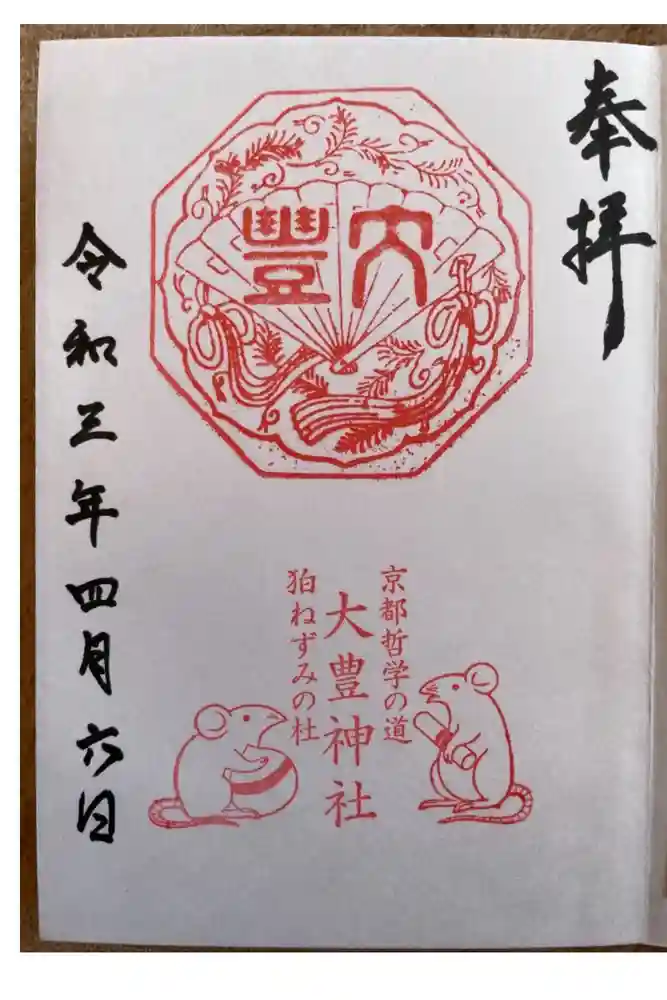 奉拝
大豐
京都哲学の道
大豊神社
狛ねずみの杜
令和三年四月六日